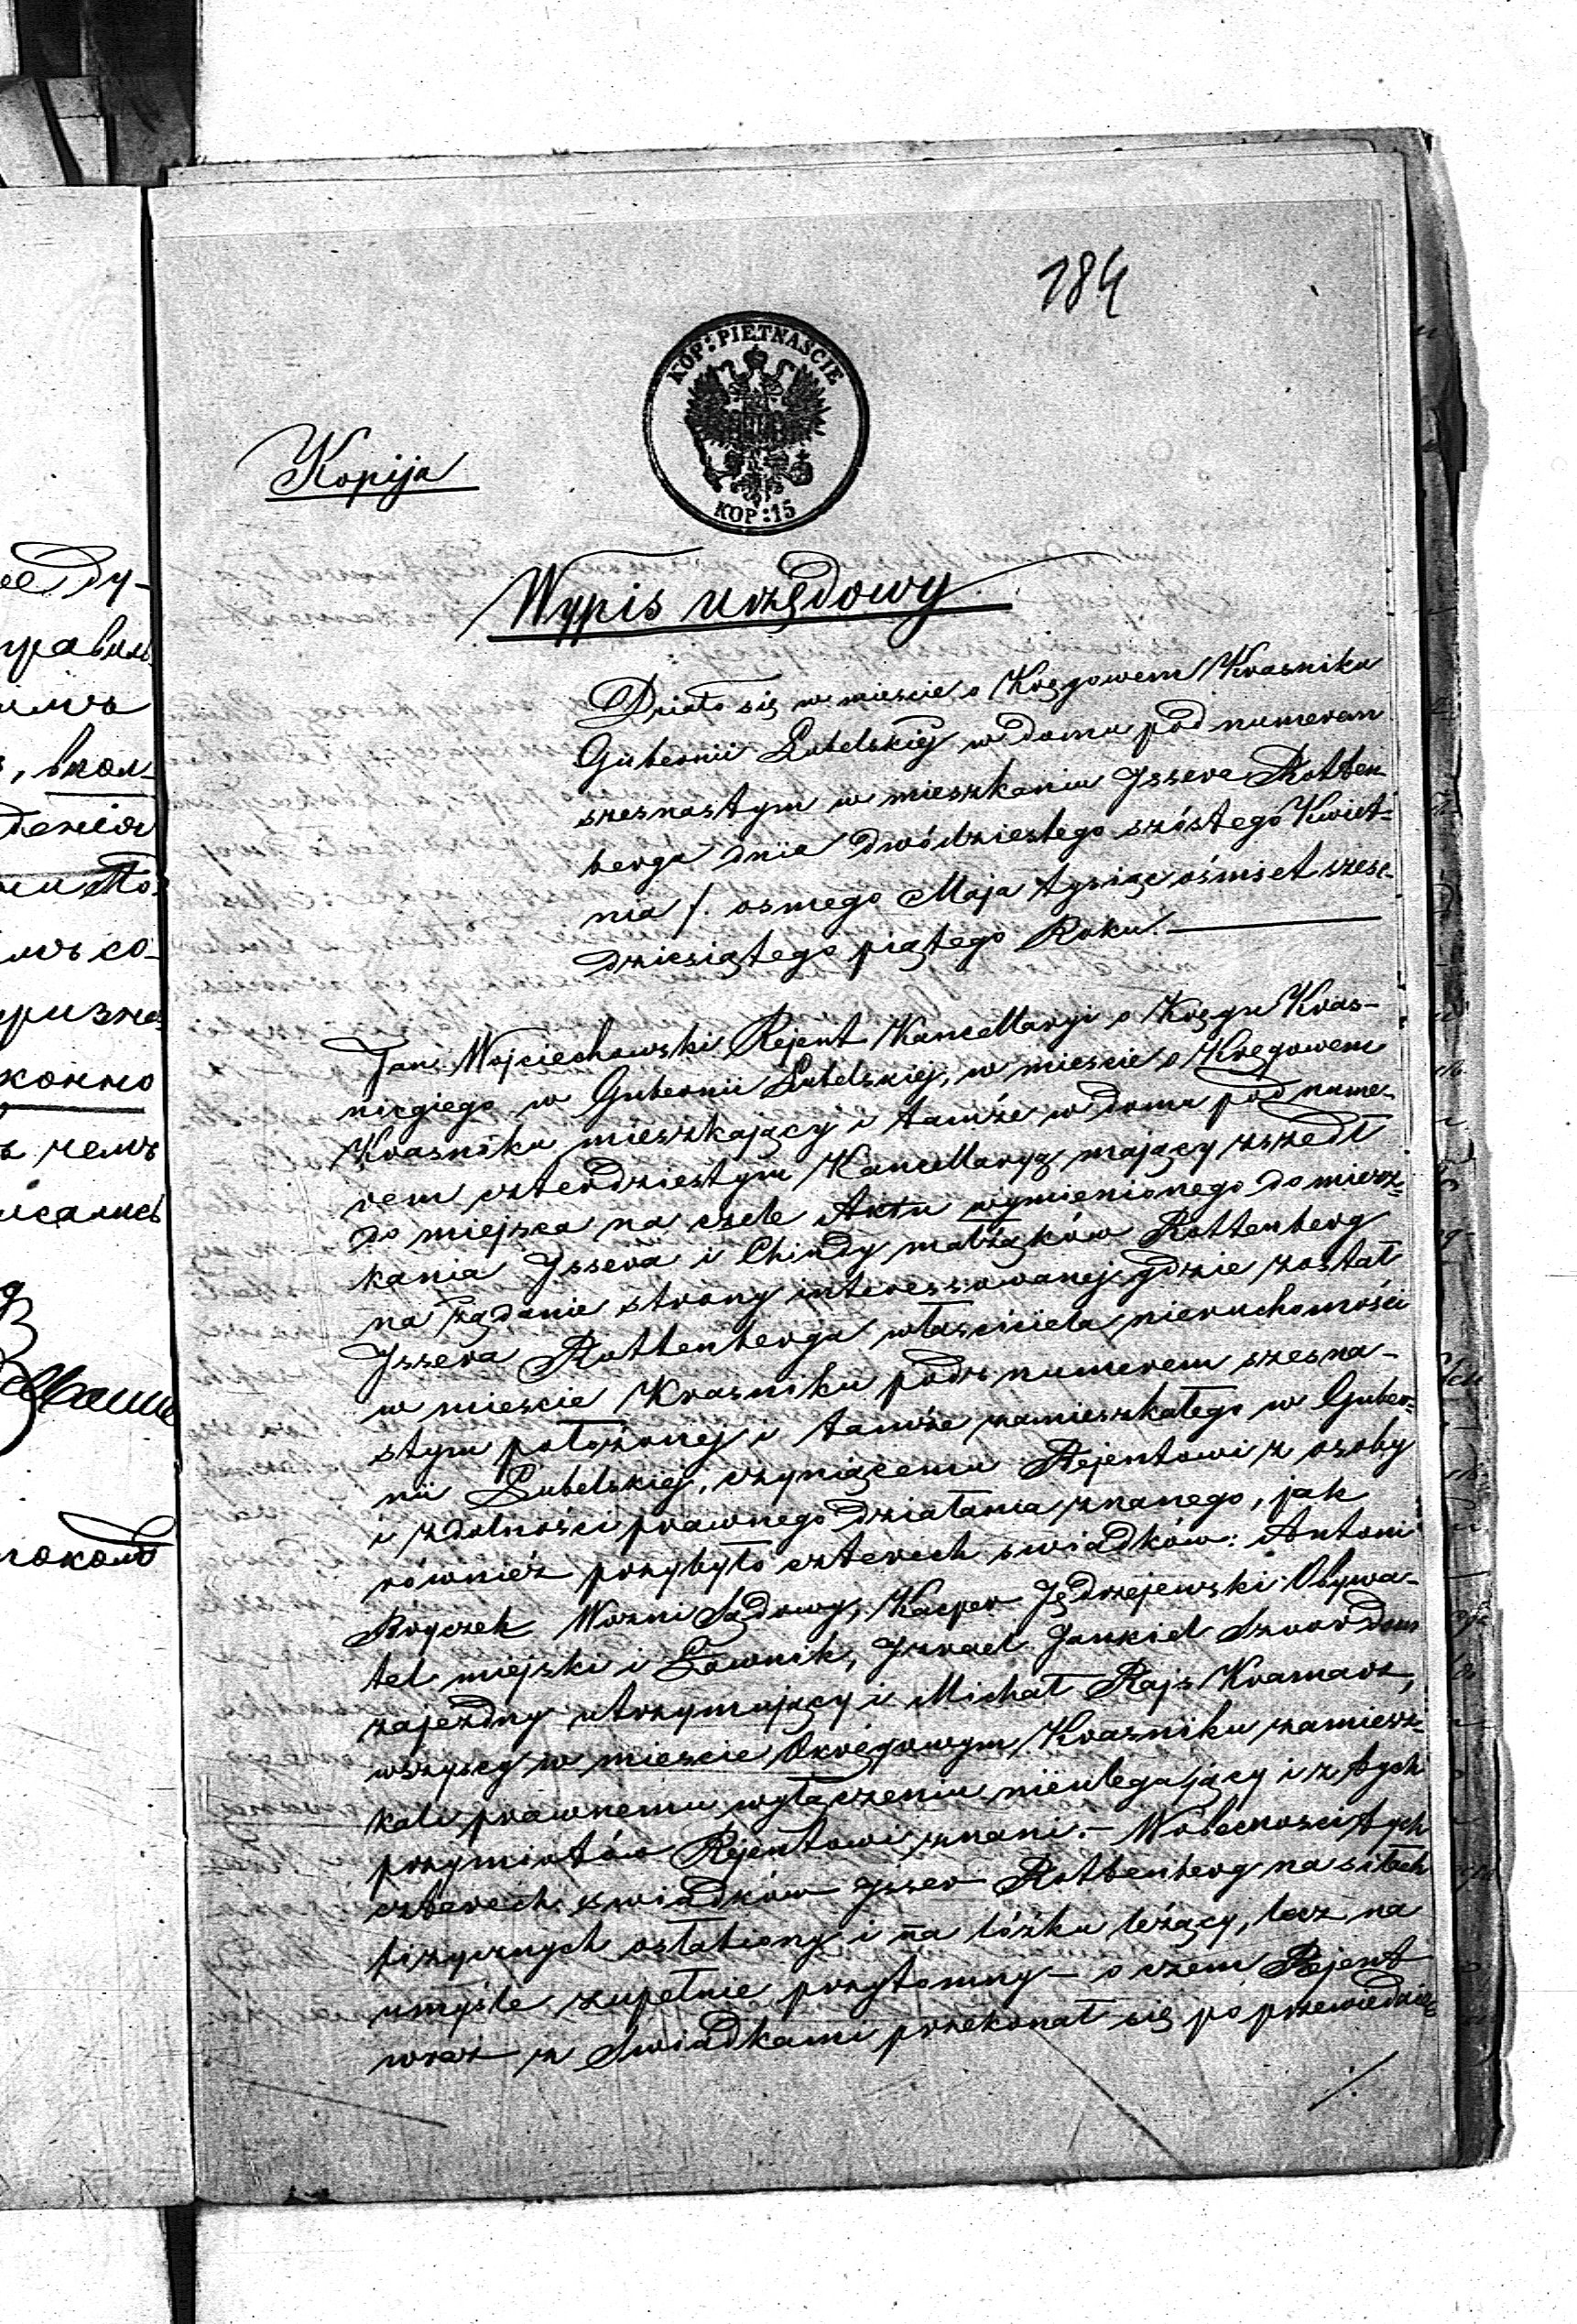 184
KOP: PIĘTNAŚCIE
KOP: 15
Kopija
Wypis urzędowy
Działo się w mieście o Kręgowem Krasniku
Gubernii Lubelskiéj w domu pod numerem
szesnastym w mieszkaniu Jssera Rotten
berga dnia dwódziestego szóstego Kwiet-
nia /. osmego Maja tysiąc ośmset szesc-
dziesiątego piątego Roku.
Jan Wojciechowski Rejent Kancellaryi o Kręgu Kras-
nickiego w Gubernii Lubelskiej, w miescie o Kręgowem
Krasniku mieszkający i tamże w domu pod nume-
rem czterdziestym Kancellaryą mający zszedł
do miejsca na czele Aktu wymienionego do miesz-
kania Jssera i Chindy małżąków Rottenberg
na rządanie strony interessowanej, gdzie został
Jssera Rottenberga właściciela nieruchomości
w miescie Krasniku pod numerem szesna-
stym położonej i tamże zamieszkałego w Guber-
nii Lubelskiej, czyniącemu Rejentowi z osoby
i zdolności prawnego działania znanego, jak
również przybyło czterech swiadków: Antoni
Bryczek Wozni Sądowy, Kacper Jędrzejewski Obywa-
tel miejski i Ławnik, Jzrael Jankiel Szwar dom
zajezdny utrzymujący i Michał Rajs Kramarz,
wszyscy w miescie Okręgowym Krasniku zamiesz-
kali prawnemu wyłączeniu nieulegający i z tych
przymiotów Rejentowi znani. - Wobecnosci tych
czterech swiadków Jsser Rottenberg na siłach
fizycznych osłabiony i na łóżku leżący, lecz na
umyśle zupełnie przytomny - o czem Rejent
wraz z Swiadkami przekonał się po przewiedzie
/.
ее ду-
правил
имъ
, вкол-
дения
мъ со-
призна
конно
ъ чемъ
исались